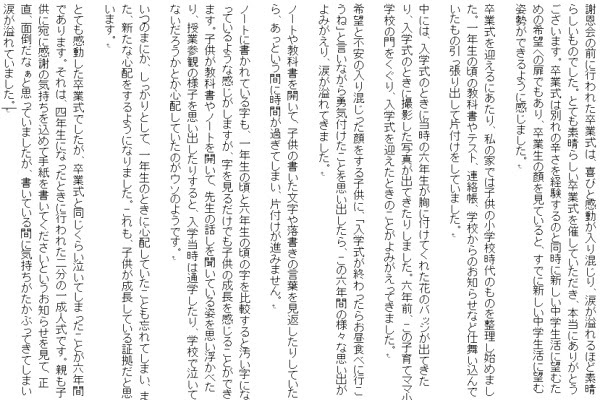 謝恩会の前に行われた卒業式は、喜びと感動が入り混じり、涙が溢れるほど素晴
らしいものでした。とても素晴らしい卒業式を催していただき、本当にありがとう
ございます。卒業式は別れの辛さを経験するのと同時に新しい中学生活に望むた
めの希望への扉でもあり、卒業生の顔を見ていると、すでに新しい中学生活に望む
姿勢ができるように感じました。
卒業式を迎えるにあたり、私の家では子供の小学校時代のものを整理し始めまし
た。一年生の頃の教科書やテスト、連絡帳、学校からのお知らせなど仕舞い込んで
いたもの引っ張り出して片付けをしていました。
中には、入学式のときに当時の六年生が胸に付けてくれた花のバッジが出てきた
り、入学式のときに撮影した写真が出てきたりしました。六年前、この子育てママ小
学校の門をくぐり、入学式を迎えたときのことがよみがえってきました。
希望と不安の入り混じった顔をする子供に、「入学式が終わったらお昼食べに行こ
うね」と言いながら勇気付けたことを思い出したら、この六年間の様々な思い出が
よみがえり、涙が溢れてきました。
ノートや教科書を開いて、子供の書いた文字や落書きの言葉を見返したりしていた
ら、あっという間に時間が過ぎてしまい、片付けが進みません。
ノートに書かれている字も、一年生の頃と六年生の頃の字を比較すると汚い字にな
っているような感じがしますが、字を見るだけでも子供の成長を感じることができ
ます。子供が教科書やノートを開いて、先生の話しを聞いている姿を思い浮かべた
り、授業参観の様子を思い出したりすると、入学当時は通学したり、学校で泣いて
ないだろうかとか心配していたのがウソのようです。
いつのまにか、しっかりとして一年生のときに心配していたことも忘れてしまい、ま
た、新たな心配をするようになりました。これも、子供が成長している証拠だと思
います。
とても感動した卒業式でしたが、卒業式と同じくらい泣いてしまったことが六年間
であります。それは、四年生になったときに行われた二分の一成人式です。親も子
供に宛に感謝の気持ちを込めて手紙を書いてくださいというお知らせを見て、正
直、面倒だなぁと思っていましたが、書いている間に気持ちがたかぶってきてしまい
涙が溢れていました。